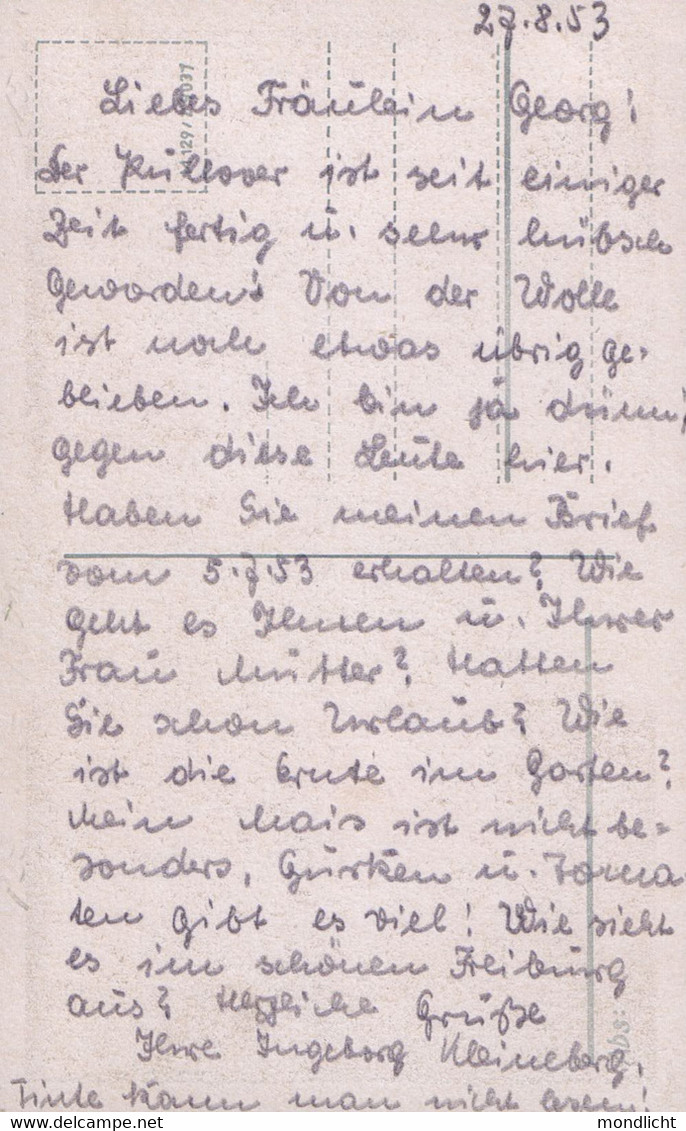 27.8.53
129/ 037
Liebes Fräulein Georg!
Der Pullover ist seit einiger
Zeit fertig u. sehr hübsch
geworden! Von der Wolle
ist noch etwas übrig ge-
blieben. Ich bin ja dünn,
gegen diese Leute hier.
Haben Sie meinen Brief
vom 5.7.53 erhalten? Wie
geht es Ihnen u. Ihrer
Frau Mutter? Hatten
Sie schon Urlaub? Wie
ist die Ernte im Garten?
Mein Mais ist nicht be-
sonders, Gurken u. Toma
ten gibt es viel! Wie sieht
es im schönen Freiburg
aus? Herzliche Grüße
Abs:
Ihre Ingeborg Kleineberg.
Tinte kann man nicht lesen!
mondlicht